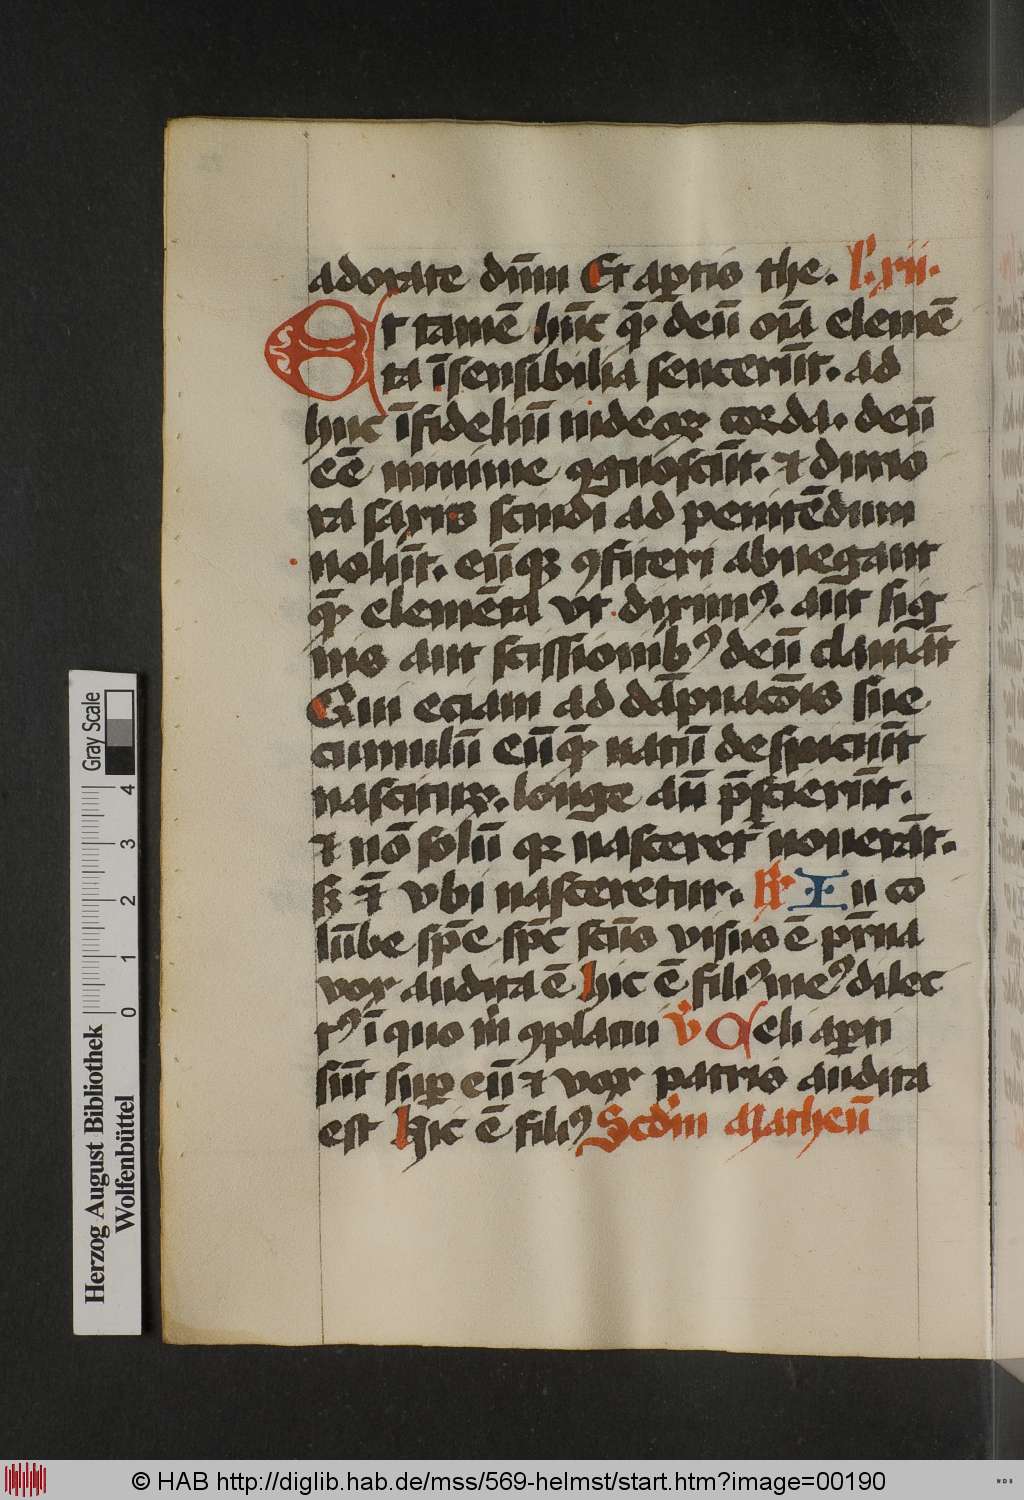 adorate dnm̄ Et aꝑtis the. l' xii.
Et tamē hūc qͣ deū oīa elemē
ta īsensibilia senserūt. ad
huc īfideliū iudeoꝝ corda. deū
eē minime ꝯgnoscūt. ⁊ durio
ra saxis scindi ad penitēdum
nolūt. eūqꝫ ꝯfiteri abnegant
qͣ elemēta vt diximꝰ. aūt sig
nis aut scissionibꝰ deū clamāt
Qui eciam ad dāpnacōis sue
cumulū Eūqͣ natū despiciūt
nascituꝝ. longe añ p̄scierūt.
⁊ nō solū qꝛ nasceret᷑ nouerāt.
sꝫ ⁊̄ vbi nasceretur. R̸ In co
lūbe spē e spc̄ scūs visus ē pr̄na
vox audita ē hic ē filiꝰ meꝰ dilec
tꝰ ī quo m̄ ꝯplacui v̓ Celi aꝑti
sūt suꝑ eū ⁊ vox patris audita
est Hic ē filiꝰ Scd'm Matheū
Herzog August Bibliothek
Wolfenbüttel
Gray Scale
0 1 2 3 4
© HAB http://diglib.hab.de/mss/569-helmst/start.htm?image=00190